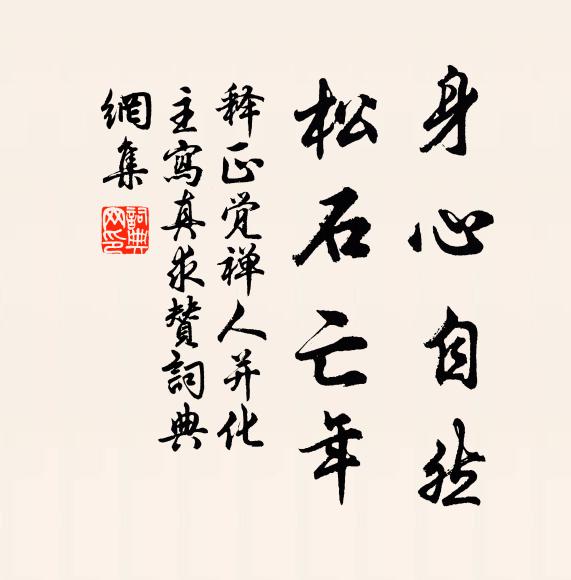 身心自然
松石亡年
释正觉禅人并化
主寫真求贊詞典
網集
詞典
网印